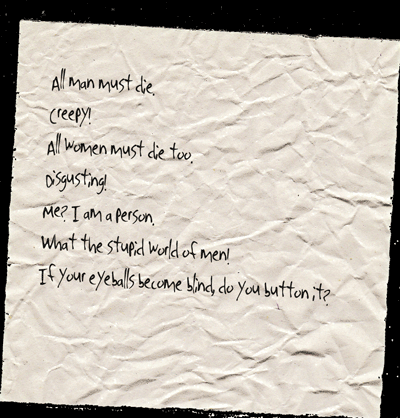 All man must die.
Creepy!
All women must die too.
Disgusting!
Me? I am a person.
What the stupid world of men!
If your eyeballs become blind, do you button it?